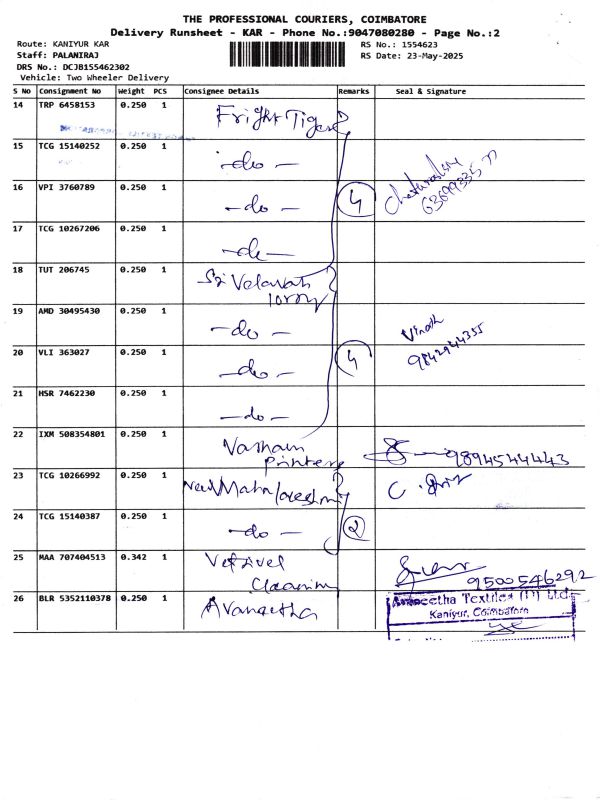 THE PROFESSIONAL COURIERS, COIMBATORE
Delivery Runsheet - KAR - Phone No.:9047080280 - Page No.:2
Route: KANIYUR KAR
RS No.: 1554623
Staff: PALANIRAJ
RS Date: 23-May-2025
DRS No.: DCJB155462302
Vehicle: Two Wheeler Delivery
S No Consignment No Weight PCS Consignee Details Remarks Seal & Signature
14 TRP 6458153 0.250 1 Fright Tiger
15 TCG 15140252 0.250 1 -do-
16 VPI 3760789 0.250 1 -do- 4
17 TCG 10267206 0.250 1 -do-
18 TUT 206745 0.250 1 Sri Velavan
lorry
19 AMD 30495430 0.250 1 -do- Vinoth
9842944355
20 VLI 363027 0.250 1 -do- 4
21 HSR 7462230 0.250 1 -do-
22 IXM 508354801 0.250 1
Printers 9894544443
23 TCG 10266992 0.250 1 New Maha
24 TCG 15140387 0.250 1 -do- 2
25 MAA 707404513 0.342 1 Vetrivel
9500546292
26 BLR 5352110378 0.250 1 Avaneetha
Avaneetha Textiles (P) Ltd.
Kaniyur, Coimbatore